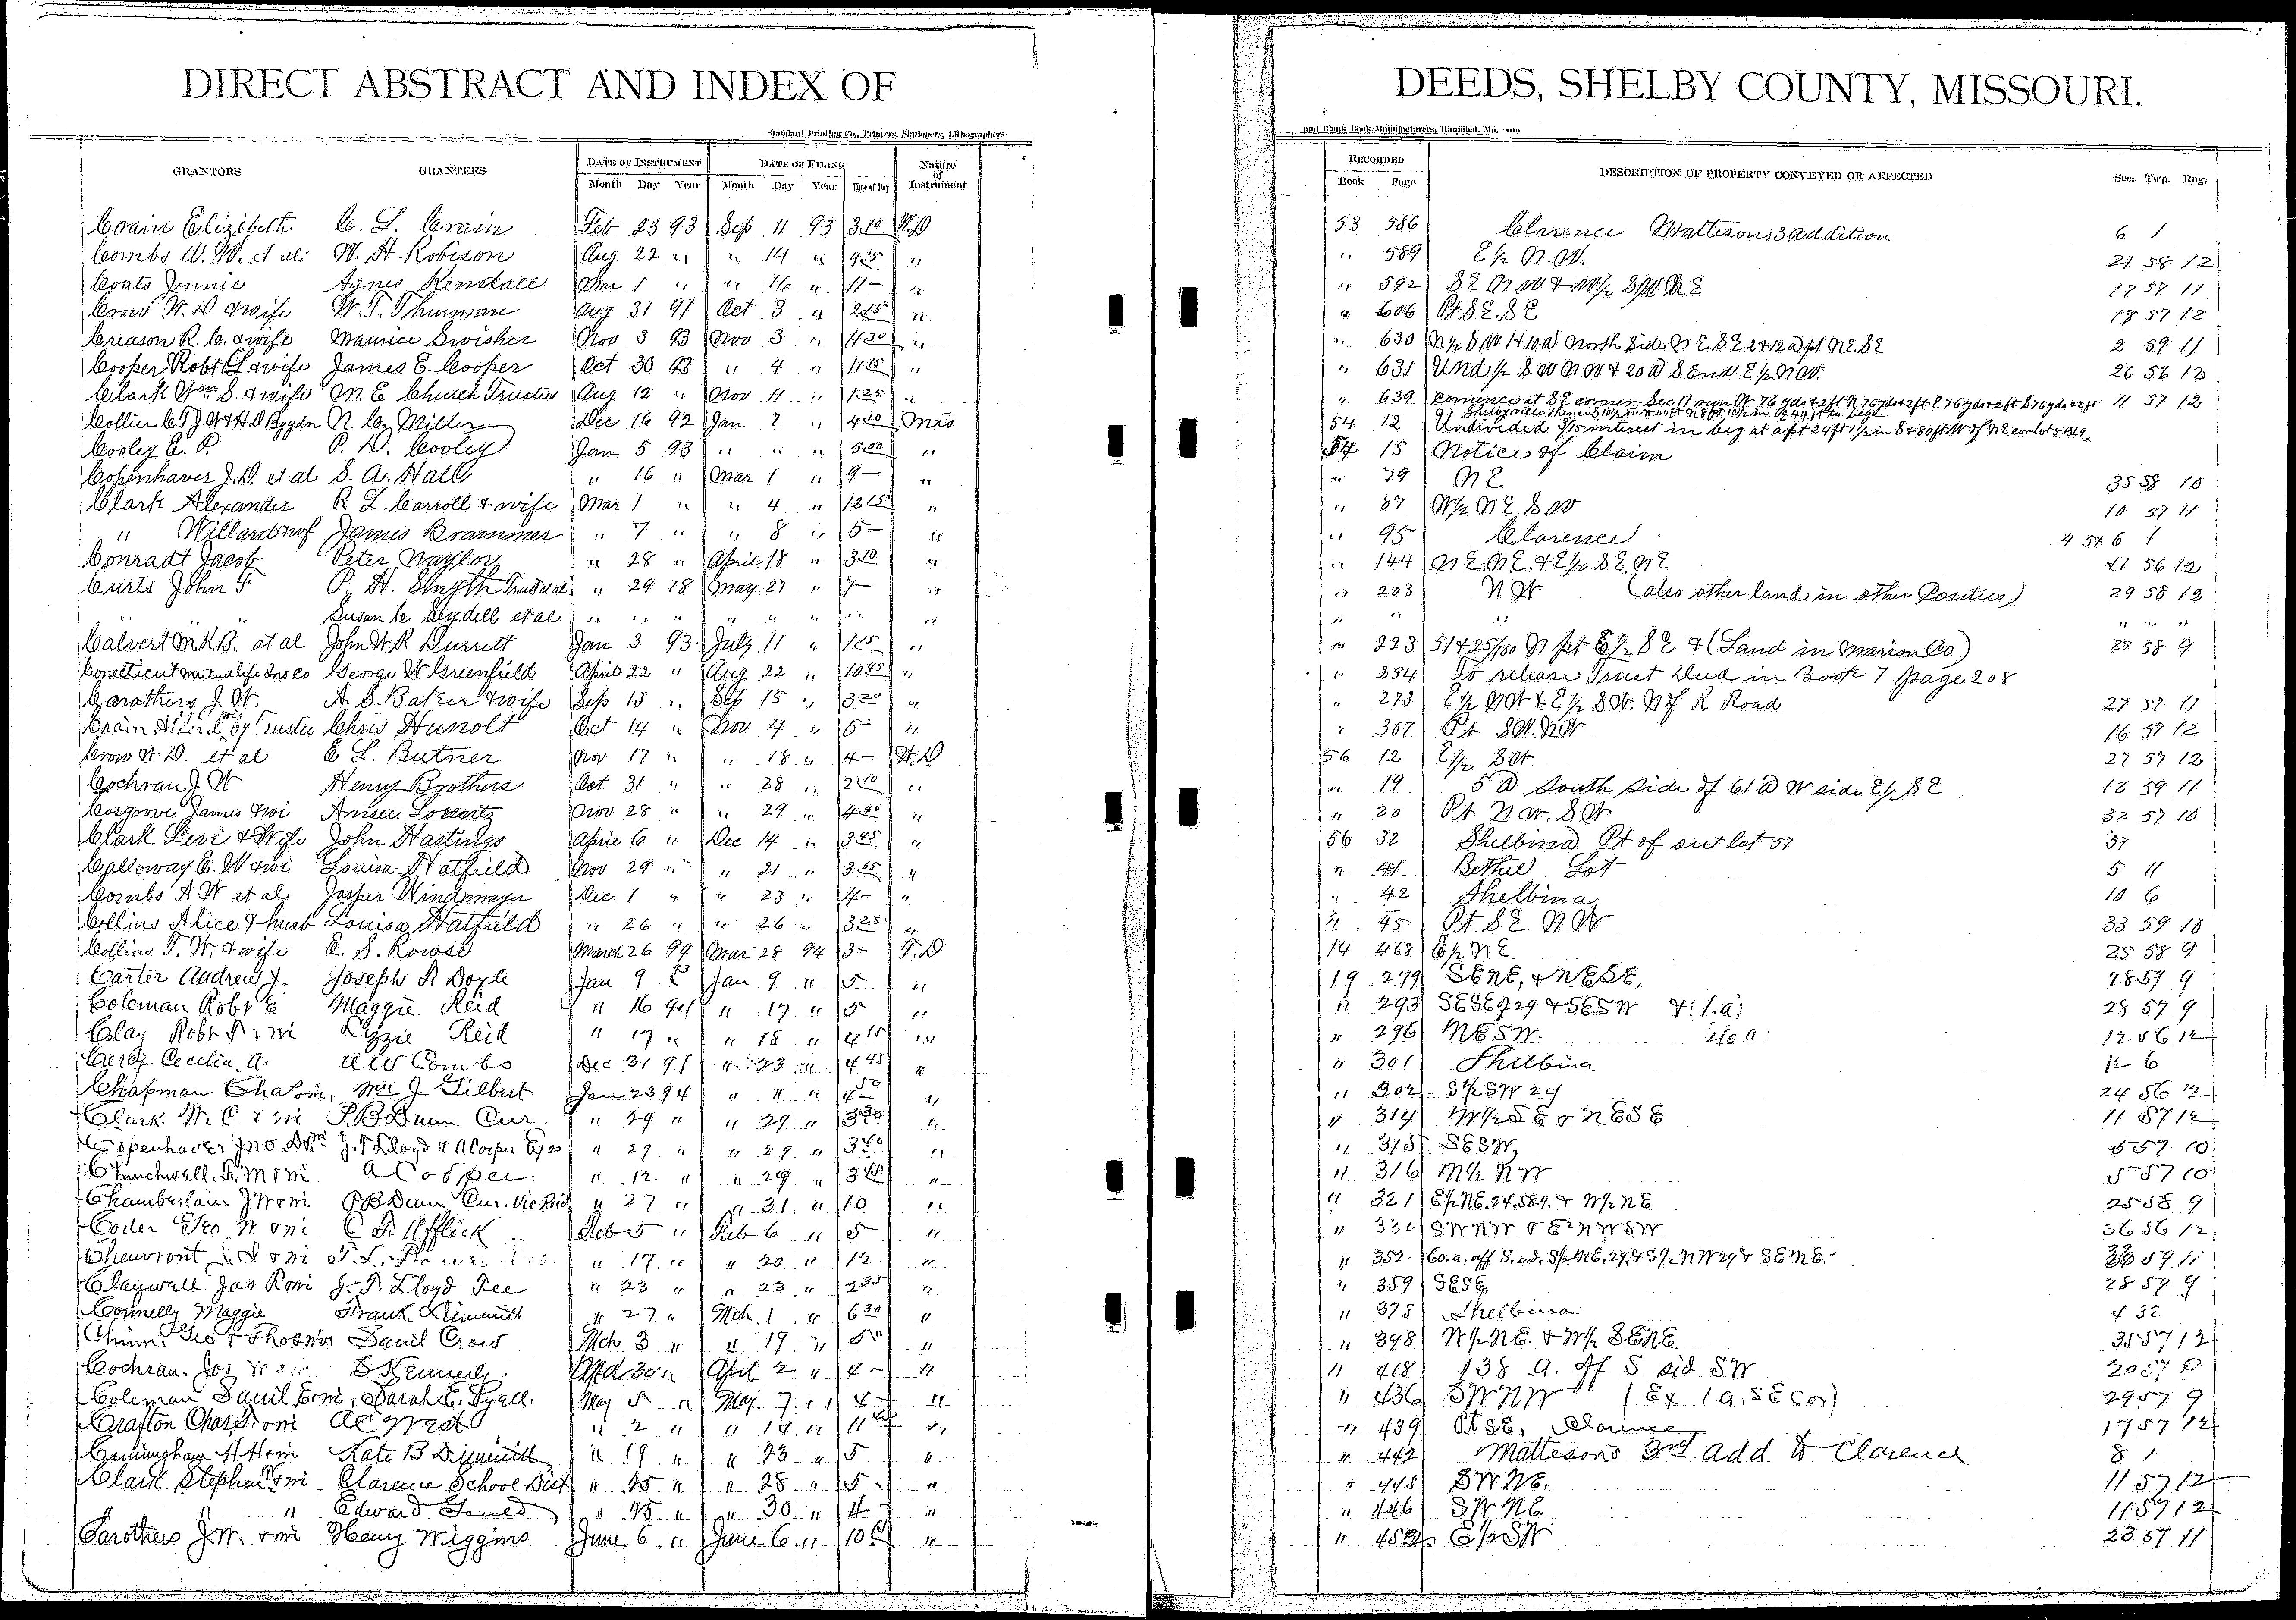 DIRECT ABSTRACT AND INDEX OF DEEDS, SHELBY COUNTY, MISSOURI.
Standard Printing Co., Printers, Stationers, Lithographers and Blank Book Manufacturers, Hannibal, Mo.
GRANTORS GRANTEES DATE OF INSTRUMENT DATE OF FILING Nature of Instrument RECORDED DESCRIPTION OF PROPERTY CONVEYED OR AFFECTED Sec. Twp. Rng.
Month Day Year Month Day Year Time of Day Book Page
Crain Elizibeth C. L. Crain Feb 23 93 Sep 11 93 3 10 W.D 53 586 Clarence Mattesons 3 addition 6 1
Combs A. W. et al W. H. Robison Aug 22 " " 14 " 4 25 " " 589 E 1/2 N.W. 21 58 12
Coats Jennie Agnes Kendall Mar 1 " " 16 " 11 – " " 592 SE NW & W 1/2 SW NE 17 57 11
Crow W. D & wife W. T. Thurman Aug 31 91 Oct 3 " 2 15 " " 606 Pt S.E. SE 18 57 12
Creason R. C. & wife Maurice Swisher Nov 3 93 Nov 3 " 11 30 " " 630 N 1/2 S.W 1 & 10 a North Side N E. SE 2 & 12 a pt N.E. SE 2 59 11
Cooper Robt L & wife James E. Cooper Oct 30 93 " 4 " 11 15 " " 631 Und 1/2 S W NW & 20 a S End E 1/2 NW. 26 56 12
Clark Wm S. & wife M. E Church Trustees Aug 12 " Nov 11 " 1 25 " " 639 Commence at SE corner Sec 11 run W 76 yds & 2 ft N 76 yds & 2 ft E 76 yds & 2 ft S 76 yds & 2 ft 11 57 12
Collier C T J W & H D Bygdn N. C. Miller Dec 16 92 Jan 7 " 4 20 Mis 54 12 Undivided 3/15 interest in beg at a pt 24 ft 1 1/2 in S & 80 ft W of NE cor lot 5 Bl 9
Cooley E. P. P. D. Cooley Jan 5 93 " " " 5 00 " 54 15 Notice of Claim
Copenhaver J. D. et al S. A. Hall " 16 " Mar 1 " 9 – " " 79 NE 35 58 10
Clark Alexander R L. Carroll & wife Mar 1 " " 4 " 12 15 " " 87 W 1/2 NE SW 10 57 11
" Willard James Brammer " 7 " " 8 " 5 – " " 95 Clarence 4 5 & 6 1
Conradt Jacob Peter Naylor " 28 " April 18 " 3 10 " " 144 NE. NE. & E 1/2 SE. NE 11 56 12
Curts John F P. H. Smyth Trust et al " 29 78 May 27 " 7 – " " 203 NW (also other land in other Counties) 29 58 12
" " Susan C. Seydell et al " " " " " " " " " " " " " "
Calvert M.K.B. et al John W R Durrett Jan 3 93 July 11 " 1 25 " " 223 51 & 25/100 N pt E 1/2 SE & (Land in Marion Co) 25 58 9
Conecticut Mutual life Ins Co George W Greenfield April 22 " Aug 22 " 10 45 " " 254 To release Trust Deed in Book 7 page 208
Carothers J. W. A. S. Baker & wife Sep 13 " Sep 15 " 3 20 " " 273 E 1/2 NW & E 1/2 SW. N of R Road 27 57 11
Crain by Trustee Chris Hunolt Oct 14 " Nov 4 " 5 – " " 307 Pt SW. NW 16 57 12
Crow W D. et al E L. Butner Nov 17 " " 18 " 4 – W.D 56 12 E 1/2 SW 27 57 12
Cochran J. W Henry Brothers Oct 31 " " 28 " 2 10 " " 19 5 a South Side of 61 a W side E 1/2 SE 12 59 11
Cosgrove James & wi Nov 28 " " 29 " 4 40 " " 20 Pt NW. SW 32 57 10
Clark Levi & Wife John Hastings April 6 " Dec 14 " 3 45 " 56 32 Shelbina Pt of out lot 57 57
Calloway E. W & wi Louisa Hatfield Nov 29 " " 21 " 3 05 " " 41 Bethel Lot 5 11
Combs A W et al Jasper Windmayer Dec 1 " " 23 " 4 – " " 42 Shelbina 10 6
Collins Alice & husb Louisa Hatfield " 26 " " 26 " 3 25 " " 45 Pt SE NW 33 59 10
Collins T. W. & wife E. S. Rowse March 26 94 Mar 28 94 3 – T.D 14 468 E 1/2 NE 25 58 9
Carter Andrew J. Joseph A Doyle Jan 9 Jan 9 " 5 " 19 279 SENE, & NESE, 28 59 9
Coleman Robt E Maggie Reid " 16 94 " 17 " 5 " " 293 SESE 29 & SESW 28 57 9
Clay Robt & wi Lizzie Reid " 17 " " 18 " 4 15 " " 296 NESW. 40 a 12 56 12
Carey Cecelia. A. A W Combs Dec 31 91 " 23 " 4 45 " " 301 Shelbina 12 6
Chapman Chas & wi, Wm J Gilbert Jan 23 94 " " " 4 50 " " 302 S 1/2 SW 24 24 56 12
Clark W. C & wi P. B Dunn Cur. " 29 " " 29 " 3 30 " " 314 W 1/2 SE & NESE 11 57 12
Copenhaver Jno. D & wi J. T Lloyd & A Cooper " 29 " " 29 " 3 40 " " 315 SESW, 5 57 10
Chinchwell. & wi A Cooper " 12 " " 29 " 3 45 " " 316 N 1/2 NW 5 57 10
Chamberlain J W & wi P B Dunn Cur. " 27 " " 31 " 10 " " 321 E 1/2 NE. 24. 58. 9. & W 1/2 NE 25 58 9
Coder Geo W & wi Afflick Feb 5 " Feb 6 " 5 " " 330 SWNW & E NWSW 36 56 12
Cheuvront & wi " 17 " " 20 " 12 " " 352 60. a. off S. end. S 1/2 NE. 29. & S 1/2 NW 29 & SENE. 59 11
Claywell Jas R & wi J. T. Lloyd Tee " 23 " " 23 " 2 35 " " 359 SESE 28 59 9
Connelly Maggie Frank Dimmitt " 27 " Mch. 1 " 6 30 " " 378 Shelbina 4 32
Chinn Geo & Thos & wis Danil Crow Mch 3 " " 19 " 5 " " 398 W 1/2 NE. & W 1/2 SENE 35 57 12
Cochran. Jos S Kennedy Apl 30 " Apl 2 " 4 – " " 418 138 a. off S sid SW 20 57
Coleman Danil E & wi, Sarah E. Lyell. May 5 " May 7 " 4 – " " 436 SWNW (Ex 1 a. SE Cor) 29 57 9
Crafton Chas & wi A C West " 2 " " 14 " 11 " " 439 Pt SE, Clarence 17 57 12
Cuningham H H & wi Kate B Dimmitt " 19 " " 23 " 5 " " 442 Mattesons 3rd add to Clarence 8 1
Clark Stephen & wi Clarence School Dist " 15 " " 28 " 5 – " " 445 SW NE. 11 57 12
" " Edward Jones " 15 " " 30 " 4 – " " 446 SW NE. 11 57 12
Carothers J.W. & wi Henry Wiggins June 6 " June 6 " 10 " " 452 E 1/2 SW 23 57 11